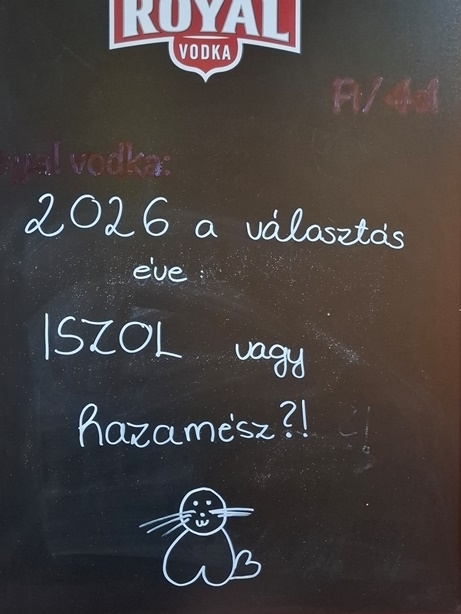 ROYAL
VODKA
vodka:
2026 a választás
éve:
ISZOL vagy
hazamész?!